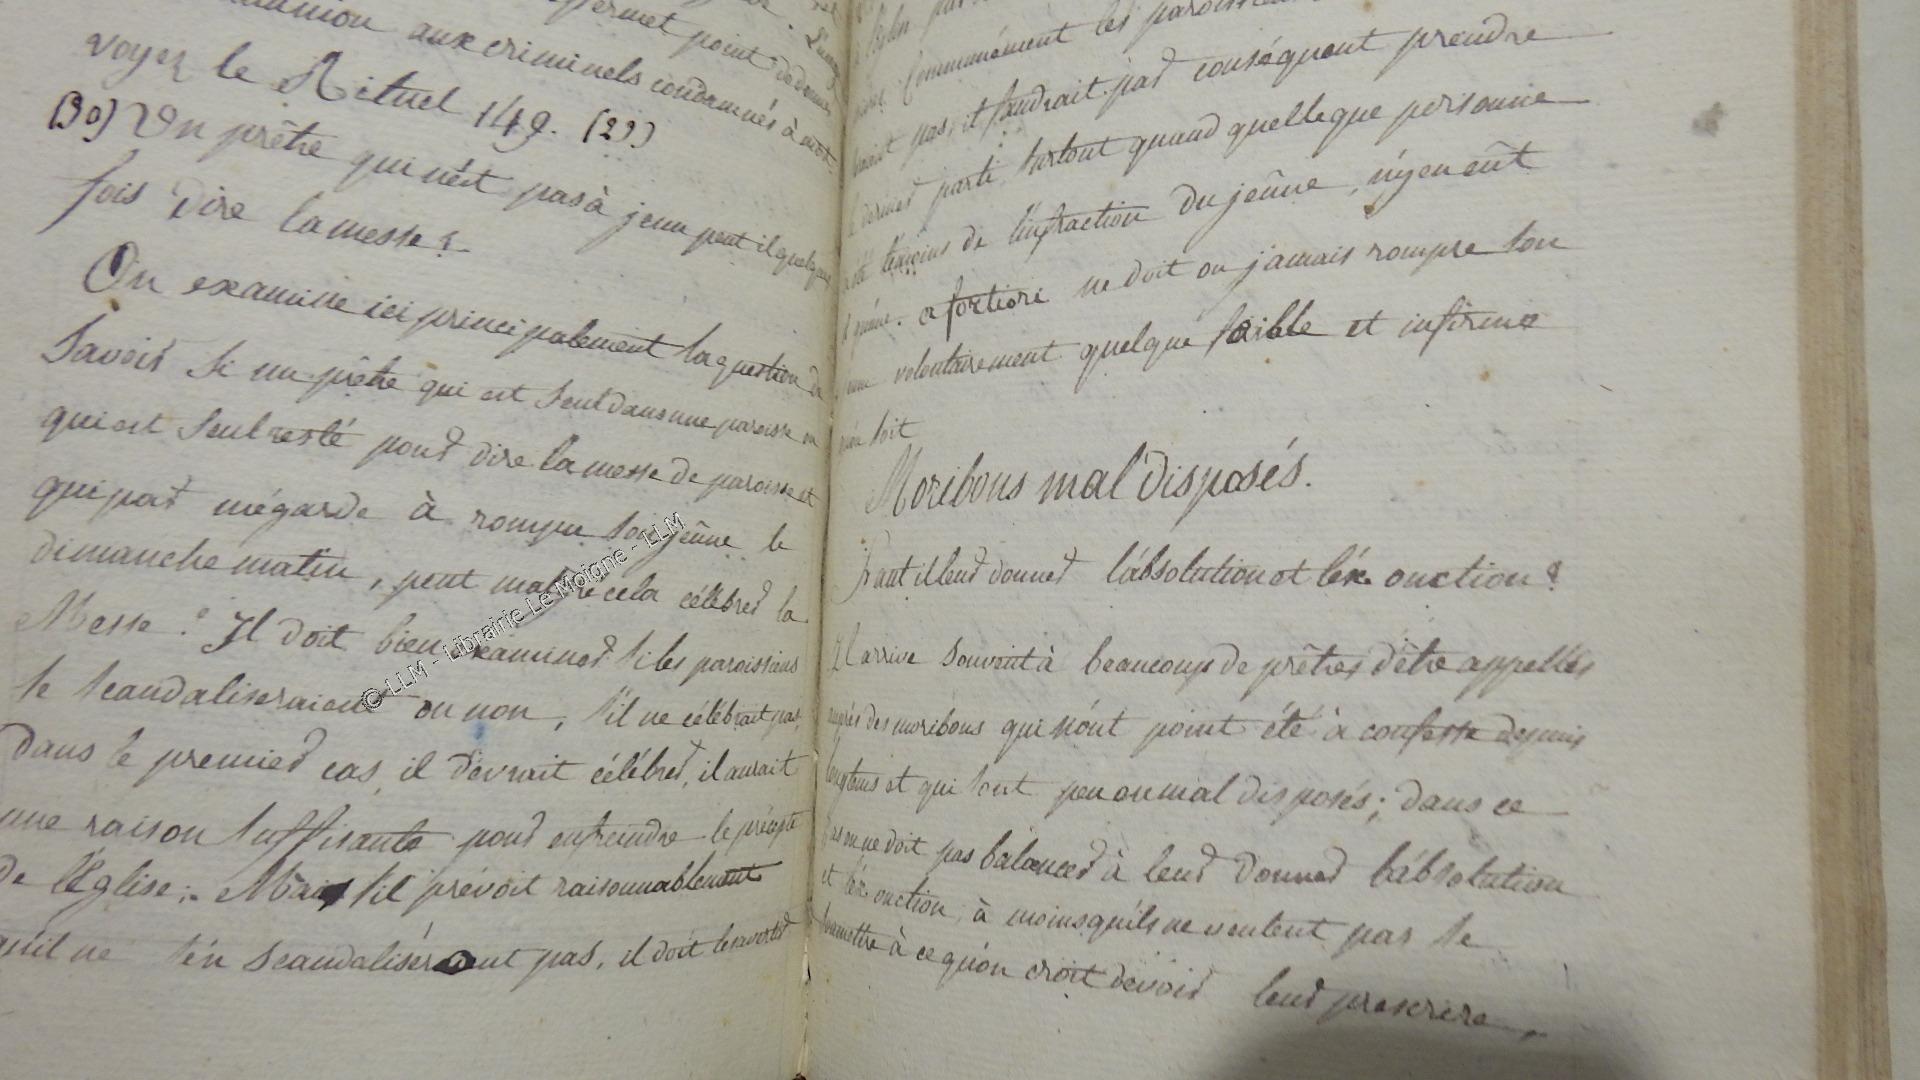 permet point de donner
aux criminels condamnés à mort
voyez le Rituel 149. (29)
(30) Un prêtre qui n'est pas à jeun peut il quelques
fois dire la messe?
On examine ici principalement la question de
savoir si un prêtre qui est seul dans une paroisse ou
qui est seul resté pour dire la messe de paroisse et
qui par mégarde à rompu son jeûne le
dimanche matin, peut malgré cela célébrer la
Messe? Il doit bien examiner si les paroissiens
se scandaliseraient ou non, s'il ne célébrait pas,
dans le premier cas, il devrait célébrer, il aurait
une raison suffisante pour enfreindre le précepte
de l'Église; Mais s'il prévoit raisonnablement
qu'il ne s'en scandaliseront pas, il doit les avertir
Communément les paroissiens
pas, il faudrait par conséquent prendre
ce dernier parti surtout quand quelleque personne
témoins de l'infraction du jeûne, n'y en eût
a fortiori ne doit on jamais rompre son
jeune volontairement quelque faible et infirme
qu'on soit
Moribons mal disposés.
Faut il leur donner l'absolution et l'ex. onction?
Il arrive souvent à beaucoup de prêtres d'être appellés
auprès des moribons qui n'ont point été à confesse depuis
longtems et qui sont peu ou mal disposés; dans ce
cas on ne doit pas balancer à leur donner l'absolution
et l'ex. onction, à moins qu'ils ne veulent pas se
soumettre à ce qu'on croit devoir leur prescrire,
© LLM - Librairie Le Moigne - LLM